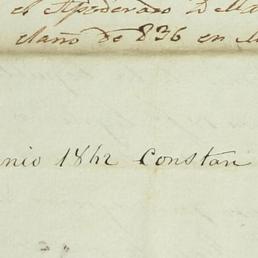 el Apoderado Della
elaño de 836 en l
nio 1842 Constan